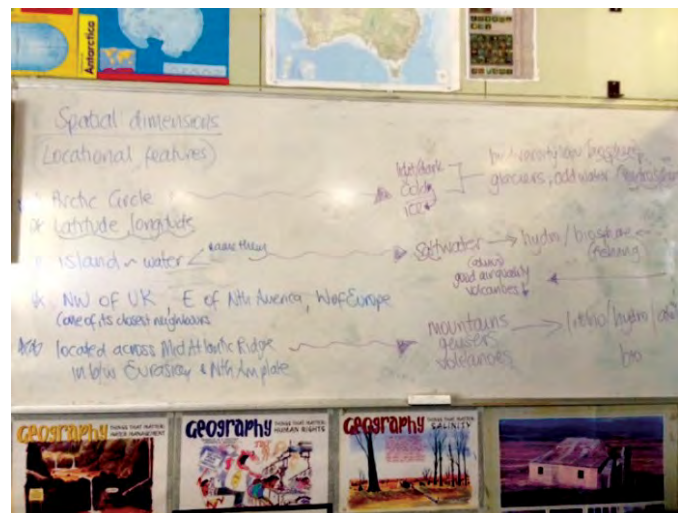 Antarctica
Spatial dimensions
(Locational features)
Arctic Circle
Latitude longitude
island ~ water
NW of UK, E of Nth America, W of Europe
(one of its closest neighbours
located across Mid Atlantic Ridge
in b/w Eurasian & Nth Am plate
cold
ice
glaciers, cold water
saltwater → hydro/biosphere
(fishing)
good air quality
volcanoes
mountains
geusers
volcanoes
bio
GEOGRAPHY THINGS THAT MATTER: WATER MANAGEMENT
GEOGRAPHY THINGS THAT MATTER: HUMAN RIGHTS
GEOGRAPHY THINGS THAT MATTER: SALINITY